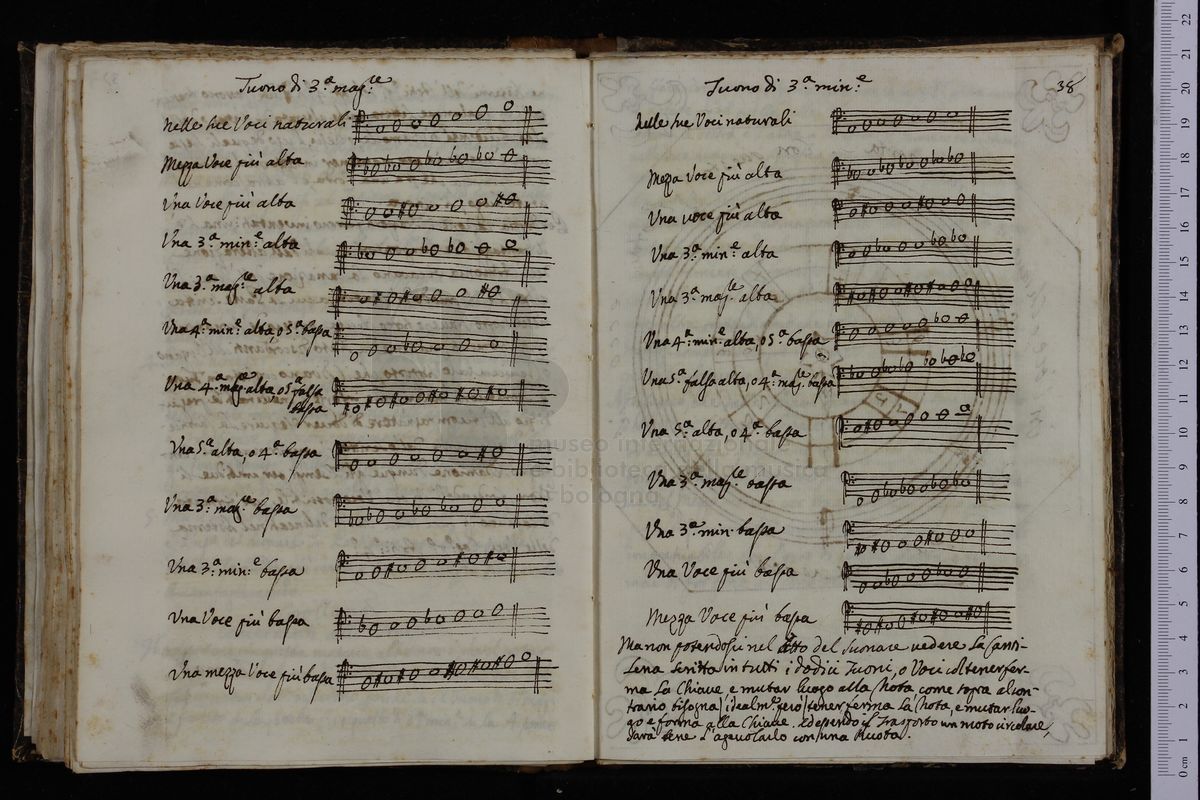 Tuono di 3.ª mag.re
nelle sue Voci naturali
Mezza Voce più alta
Una Voce più alta
Una 3.ª min.e alta
Una 3.ª mag.re alta
Una 4.ª min.e alta, o 5.ª bassa
Una 4.ª mag.re alta, o 5.ª falsa
bassa
Una 5.ª alta, o 4.ª bassa
Una 3.ª mag.re bassa
Una 3.ª min.e bassa
Una Voce più bassa
Una mezza Voce più bassa
Tuono di 3.ª min.e
38
nelle sue Voci naturali
Mezza Voce più alta
Una voce più alta
Una 3.ª min.e alta
Una 3.ª mag.re alta
Una 4.ª min.e alta, o 5.ª bassa
Una 5.ª falsa alta, o 4.ª mag.re bassa
Una 5.ª alta, o 4.ª bassa
Una 3.ª mag.re bassa
Una 3.ª min. bassa
Una Voce più bassa
Mezza Voce più bassa
Ma non potendosi nel atto del suonare vedere la Canti-
lena scritta in tutti i dodici Tuoni, o Voci col tener fer-
ma la Chiave, e mutar luogo alla Nota come sopra al con-
trario bisogna però tener ferma la Nota, e mutar luo-
go e forma alla Chiave. Ed essendo il Trasporto un moto circolare,
sarà bene l'agevolarlo con una Ruota.
museo internazionale
e biblioteca della musica
di bologna
0 cm 1 2 3 4 5 6 7 8 9 10 11 12 13 14 15 16 17 18 19 20 21 22